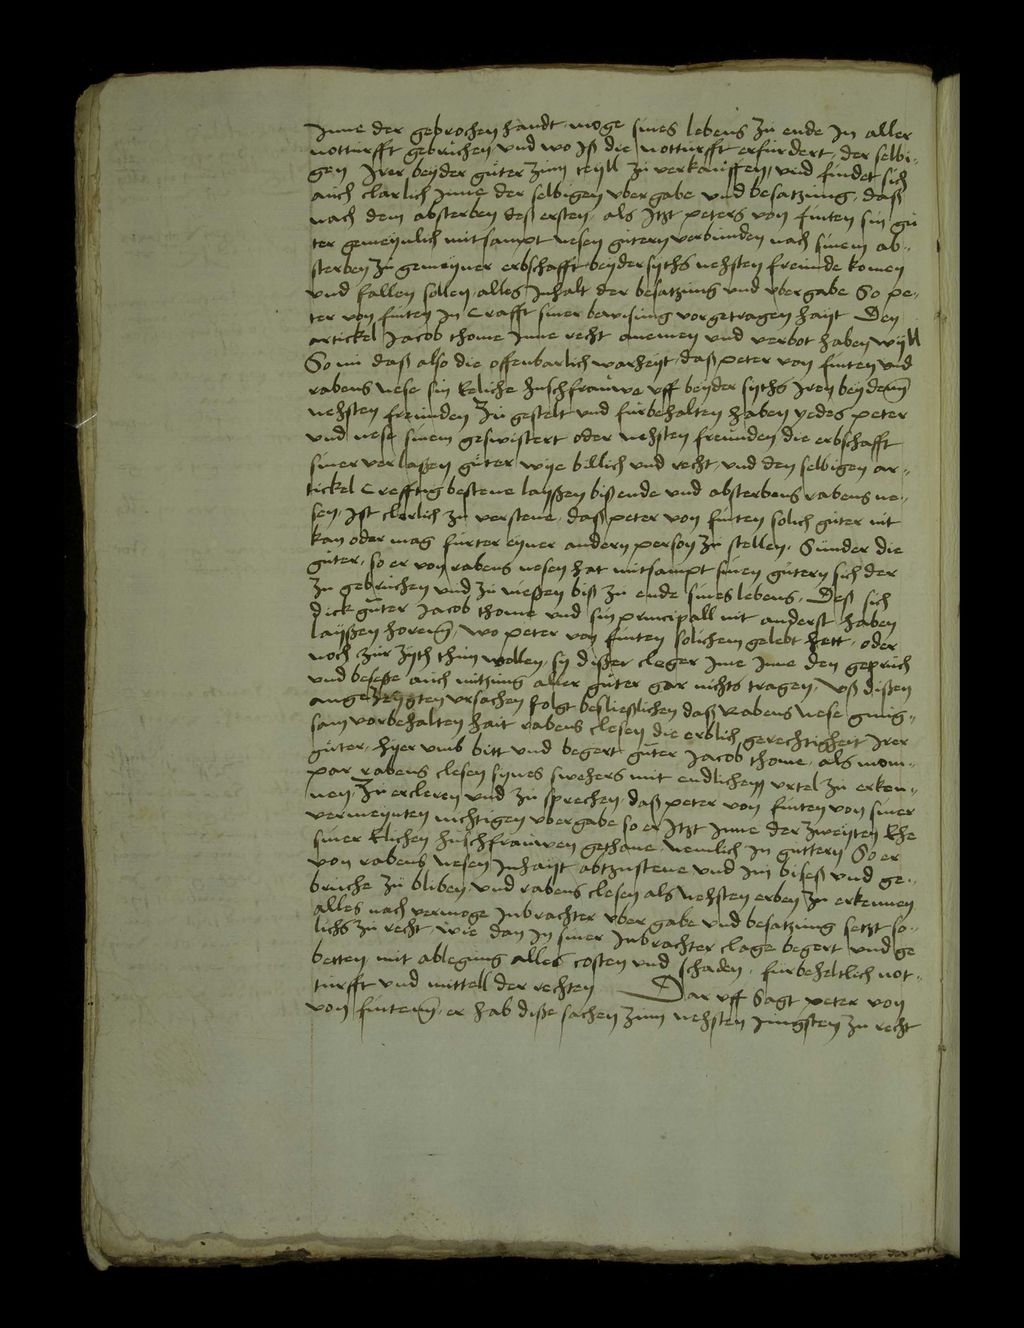 Inne der gebrochen handt, moge sines lebens zu ende in aller
notturfft gebrichen und wo iß die notturfft erfurdert, der selbi-
gen Irer beyder guter zum teyll zu verkauffen, und findet sich
auch clarlich Inne der selbigen ubergabe und besatzung, daß
nach dem absterben deß ersten, als itzt peters von finten sin gu
ter gemeynlich mitsampt nesen gutern verbunden nach sinem ab-
sterben zu gemeyner erbschafft beyder syths nehsten freunde komen
und fallen sollen, alles Inhalt der besatzung und ubergabe So pe-
ter von finten In Crafft siner bewisung vorgetragen hayt Den
artickel Jacob thome Inne recht annemen und verbot haben wyll
So nu daß also die offenbarlich warheyt, daß peter von finten und
rabens nese sin Eeliche hußfrauwe uff beyder syths Iren beyden
nehsten freunden zu gestelt und furbehalten haben yedes peter
und nese sinem geswistert oder nehsten freunden die erbschafft
siner verlaßen guter wye billich und recht und den selbigen ar-
tickel Crefftig bestene layßen biß ende und absterbens rabens ne-
sen, Ist clerlich zu verstene, daß peter von finten solich guter nit
kan oder mag furter eyner andern person zu stellen, Sunder die
guter, so er von rabens nesen hat mitsampt sinen gutern sich der
zu gebruchen und zu nießen biß zu ende sines lebens, Deß sich
dick guter Jacob thome und sin principall nit anderst haben
layßen horen, wo peter von finten solichem gelebt hett, oder
noch zur zyth thun wollen, sy dißer cleger Ime Inne den gepruch
und beseße auch nutzung aller guter gar nichts tragen, Uß dißen
angezeygten ursachen folgt besließlichen daß Rabens Nese gnug-
sam vorbehalten hait rabens clesen die erblich gerechtigheit Irer
guter, hyer umb bitt und begert guter Jacob thome, als mom-
par rabens clesen synes swehers mit endlichem urtel zu erken-
nen, Zu ercleren und zu sprechen, daß peter von finten von siner
vermeynten nichtigen ubergabe so er itzt Inne der zweyten Ehe
siner Elichen hußfrauwen gethane nemlich in guttern So er
von rabens nesen Inhayt abzustene und im biseß und ge-
bruche zu bliben und rabens clesen als nehsten erben zu erkennen
alles nach vermoge Inbrachter ubergabe und besatzung setzt so-
lichs zu recht wie dan In siner Inbrachter clage begert und ge
betten mit ablegung alles costen und schaden, furbeheltlich not-
turfft und mittell der rechten Dar uff Sagt peter von
von finten, er hab diße sachen zum nehsten Jungsten zu recht